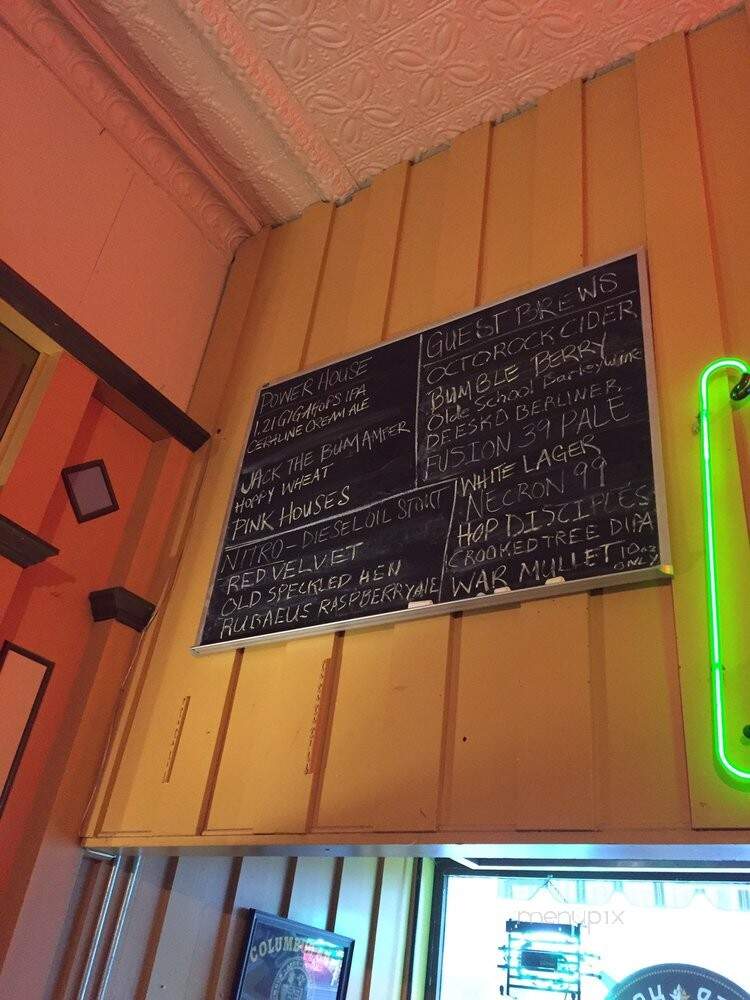 POWER HOUSE
1.21 GIGAHOPS IPA
CERALINE CREAM ALE
JACK THE BUM AMBER
HOPPY WHEAT
PINK HOUSES
NITRO - DIESEL OIL STOUT
RED VELVET
OLD SPECKLED HEN
RUBAEUS RASPBERRY ALE
GUEST BREWS
OCTOROCK CIDER
BUMBLE BERRY
Olde School Barleywine
DEESKO BERLINER
FUSION 39 PALE
WHITE LAGER
NECRON 99
HOP DISCIPLES
CROOKED TREE DIPA
WAR MULLET 10oz ONLY
menupix